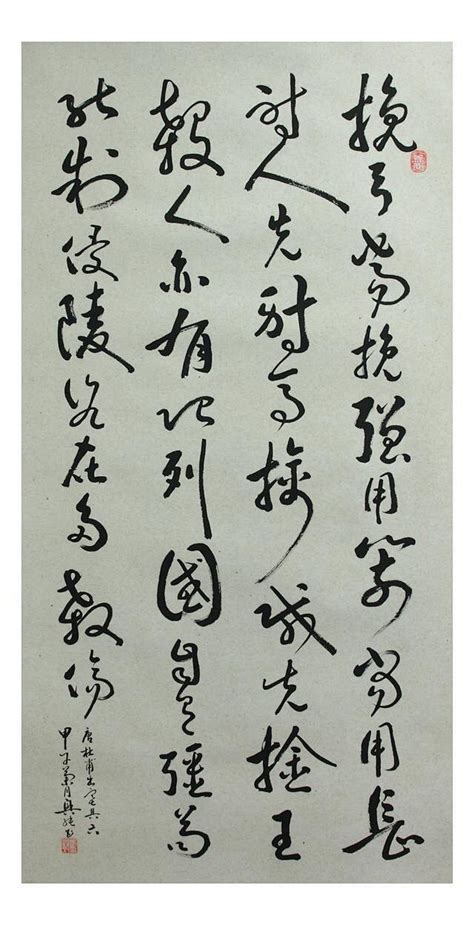 挽弓當挽強用箭當用長
射人先射馬擒賊先擒王
殺人亦有限列國自有疆苟
能制侵陵豈在多殺傷
唐杜甫出塞其六
甲子菊月